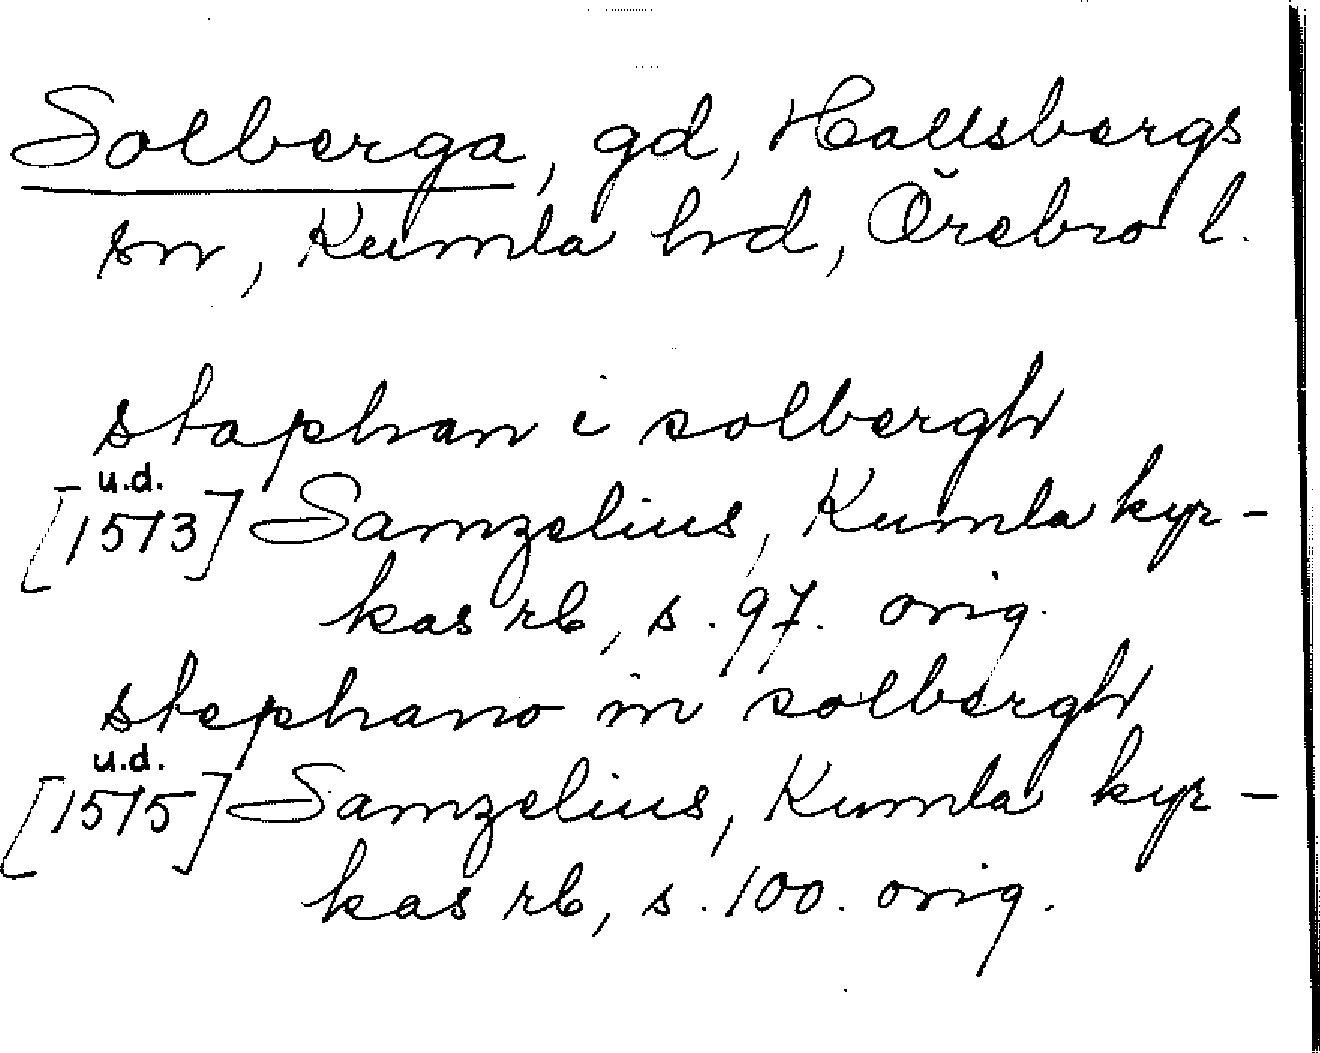 Solberga, gd, Hallsbergs
sn, Kumla hrd, Örebro l.
staphan i solbergh
u.d.
[1513] Samzelius, Kumla kyr-
kas rb, s. 97. orig.
stephano in solbergh
u.d.
[1515] Samzelius, Kumla kyr-
kas rb, s. 100. orig.